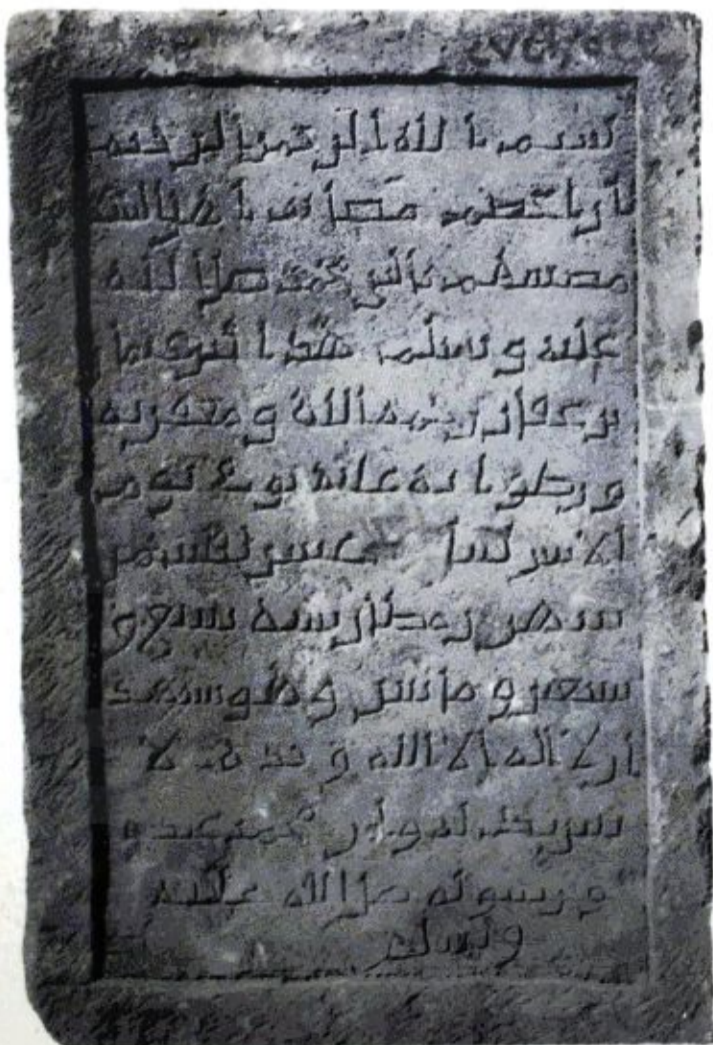 بسم الله الرحمن الرحيم
ان اعظم مصائب اهل
مصيبتهم بالنبي محمد صلى الله
عليه وسلم هذا قبر
بن عفان رحمة الله ومغفرته
ورضوانه عليه توفي يوم
الاثنين لعشر بقين من
شهر رمضان سنة سبع و
سبعين ومائتين وهو يشهد
ان لا اله الا الله وحده لا
شريك له وان محمد عبده
ورسوله صلى الله عليه
وسلم